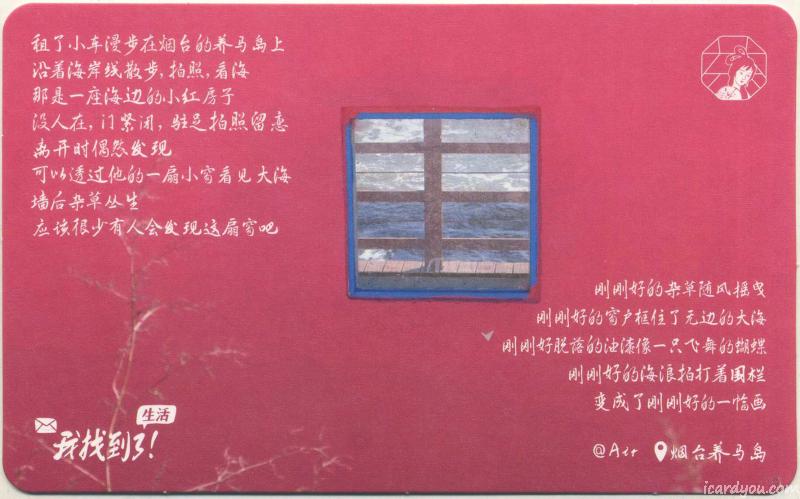 租了小车漫步在烟台的养马岛上
沿着海岸线散步，拍照，看海
那是一座海边的小红房子
没人在，门紧闭，驻足拍照留恋
离开时偶然发现
可以透过他的一扇小窗看见大海
墙后杂草丛生
应该很少有人会发现这扇窗吧
刚刚好的杂草随风摇曳
刚刚好的窗户框住了无边的大海
刚刚好脱落的油漆像一只飞舞的蝴蝶
刚刚好的海浪拍打着围栏
变成了刚刚好的一幅画
生活
我找到了！
@Art 烟台养马岛
icardyou.com